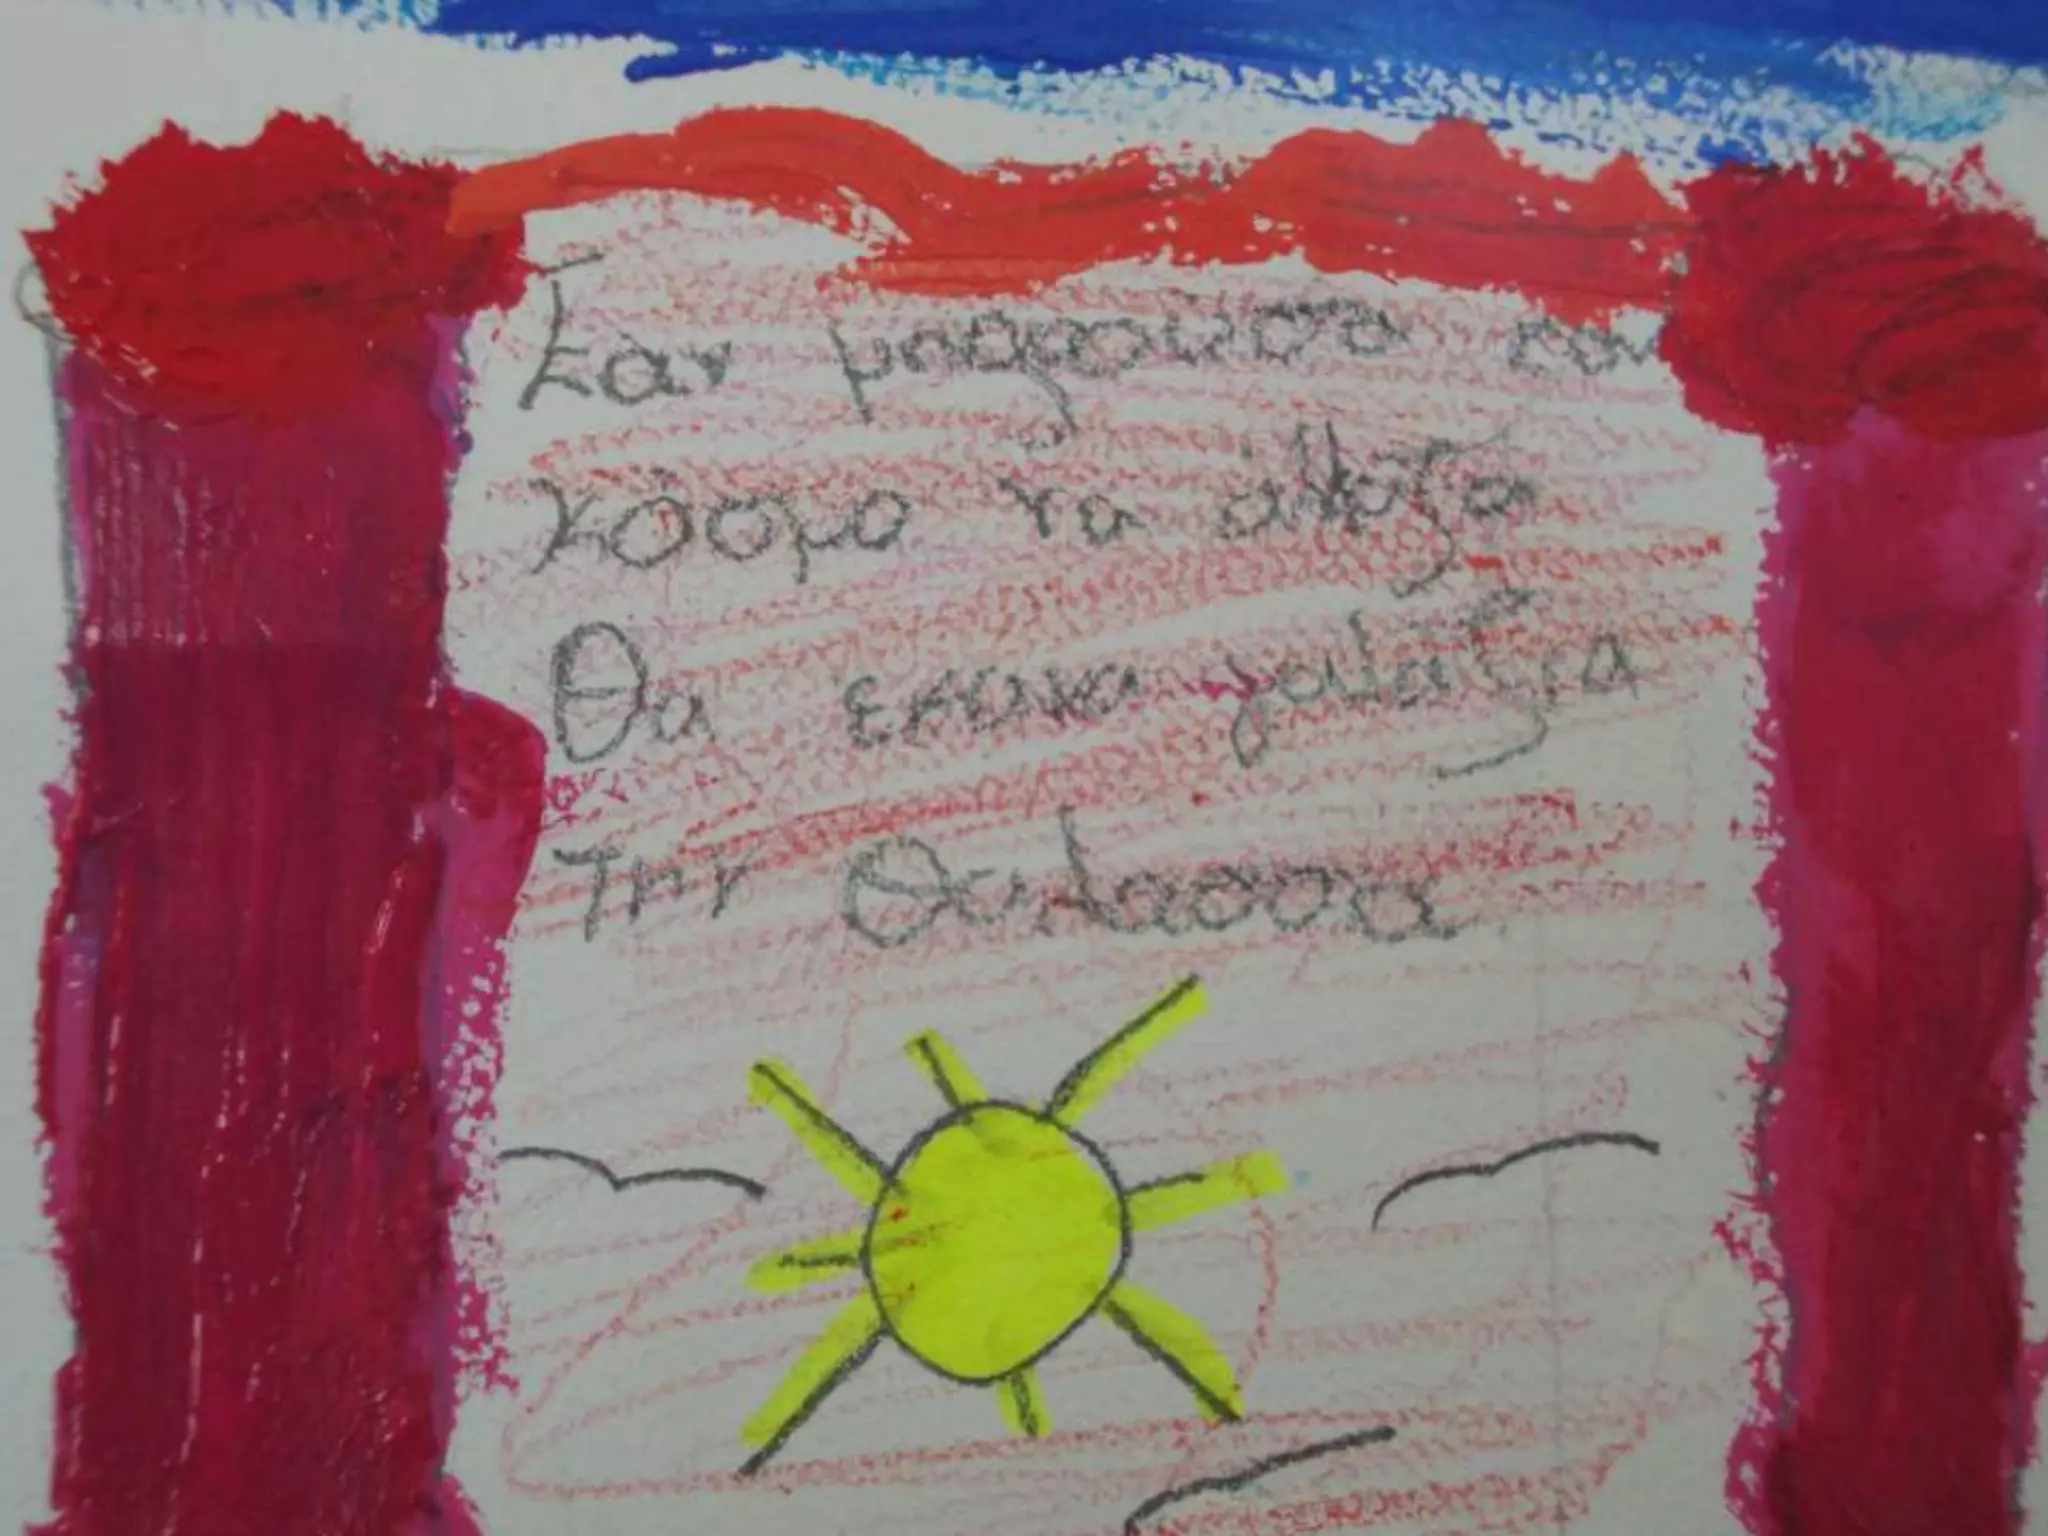 Σαν μπορούσα τον
κόσμο να αλλαξα
Θα εκανα γαλαζια
Την Θαλασσα